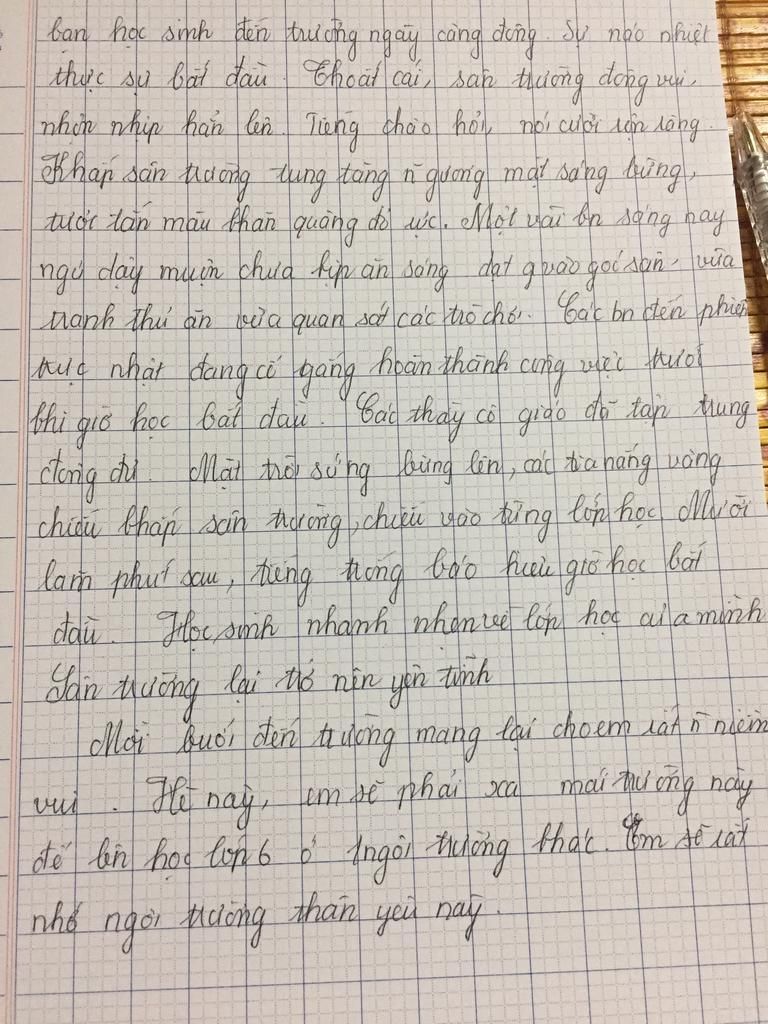 bạn học sinh đến trường ngày càng đông. Sự náo nhiệt
thực sự bắt đầu. Thoắt cái, sân trường đông vui,
nhộn nhịp hẳn lên. Tiếng chào hỏi, nói cười rộn ràng.
Khắp sân trường tung tăng n gương mặt sáng bừng,
tươi tắn màu khăn quàng đỏ rực. Một vài bn sáng nay
ngủ dậy muộn chưa kịp ăn sáng dạt vào góc sân, vừa
tranh thủ ăn vừa quan sát các trò chơi. Các bn đến phiên
trực nhật đang cố gắng hoàn thành công việc trước
khi giờ học bắt đầu. Các thầy cô giáo đã tập trung
đông đủ. Mặt trời sáng bừng lên, các tia nắng vàng
chiếu khắp sân trường, chiếu vào từng lớp học. Mười
lăm phút sau, tiếng trống báo hiệu giờ học bắt
đầu. Học sinh nhanh nhẹn về lớp học của mình
Sân trường lại trở nên yên tĩnh
Mỗi buổi đến trường mang lại cho em rất n niềm
vui. Hè này, em sẽ phải xa mái trường này
để lên học lớp 6 ở 1 ngôi trường khác. Em sẽ rất
nhớ ngôi trường thân yêu này.